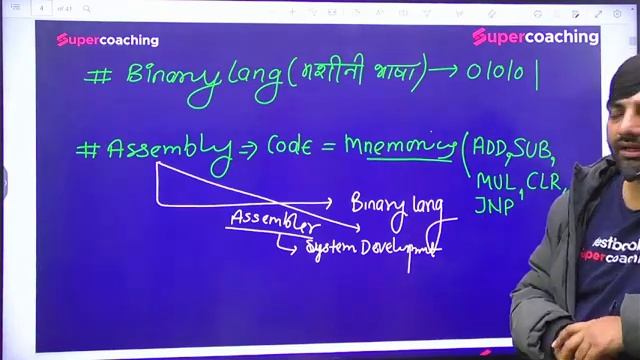 4 of 41
Supercoaching
Supercoaching
# Binary lang (मशीनी भाषा) → 01010 |
# Assembly ⇒ Code = Mnemonics ( ADD, SUB,
MUL, CLR,
JNP
Binary lang
Assembler
System Development
testbook
supercoac